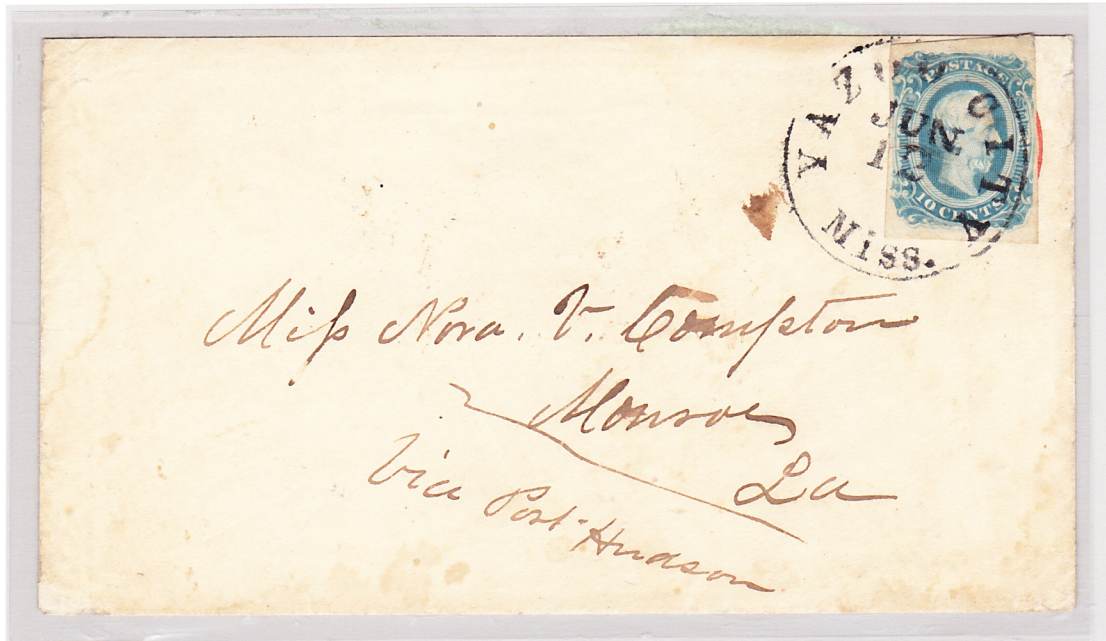 YAZOO CITY
JUN
Miss.
POSTAGE
10 CENTS
Miſs Nora. V. Compton
Monroe
La
Via Port Hudson